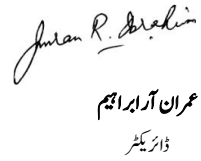 Imran R. Ibrahim
عمران آر ابراہیم
ڈائریکٹر